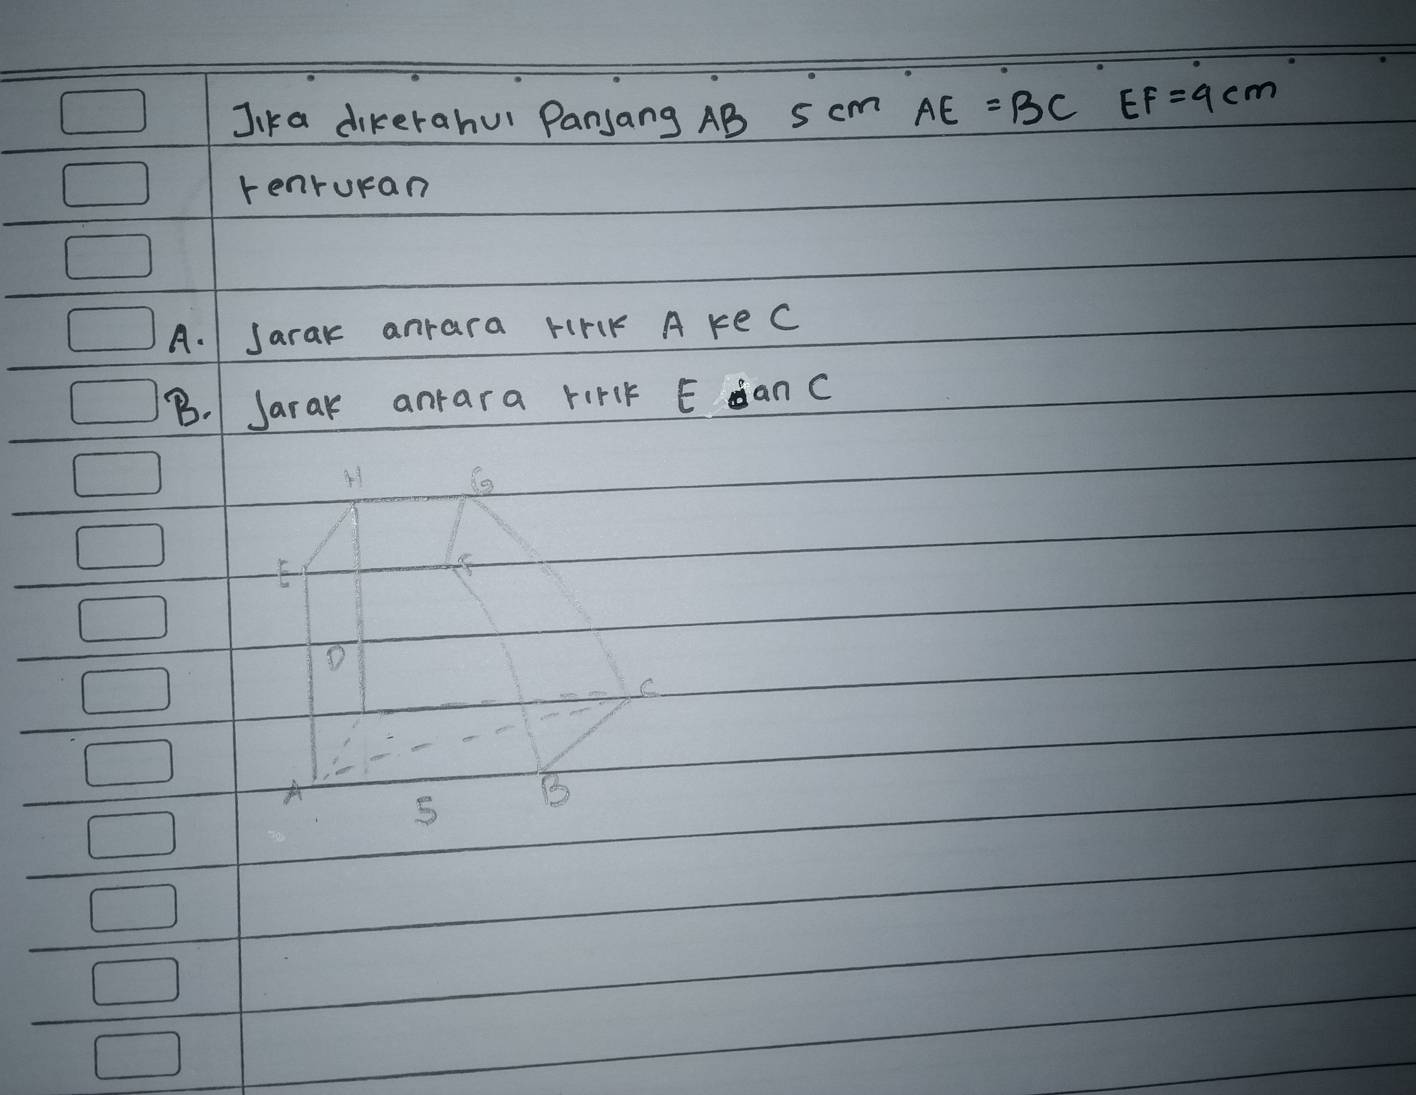 Jika diketahui Panjang AB 5 cm AE = BC EF = 4 cm
tentukan
A. Jarak antara titik A ke C
B. Jarak antara titik E dan C
H G
E F
D
C
A B
5